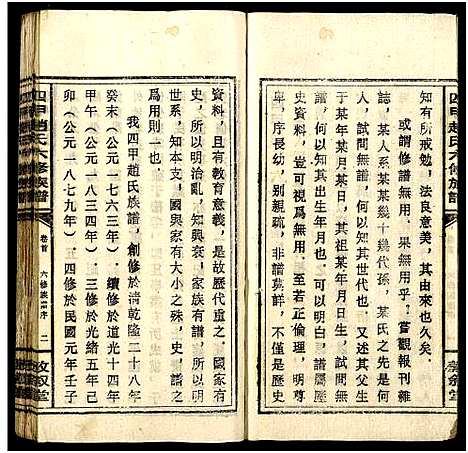 知有所戒勉，法良意美，其由來也久矣。
或謂修譜無用。果無用乎。嘗觀報刊雜
誌，某人系某某幾十幾代孫，某氏之先是何
人，試問無譜，何以知其世代也。又常載某某
于某年某月某日，其祖某年月日生，試問無
譜，何以知其出生年月也。可以明白，史以譜
証，譜豈可視爲無用。至若正倫理，明尊
卑，序長幼，別親疏，非譜莫詳，不僅是歷史
四甲趙氏六修族譜
資料，且有教育意義，是故歷代重之。國家有
史，所以明治亂，知興衰，家族有譜，所以明
世系，知本支，國與家有大小之殊，史與譜之
爲用則一也。
我四甲趙氏族譜，創修於清乾隆二十八年
癸未（公元一七六三年）。續修於道光十四年
甲午（公元一八三四年）。三修於光緒五年己
卯（公元一八七九年）。四修於民國元年壬子
四甲趙氏六修族譜
卷首
六修族譜序
二
敘堂